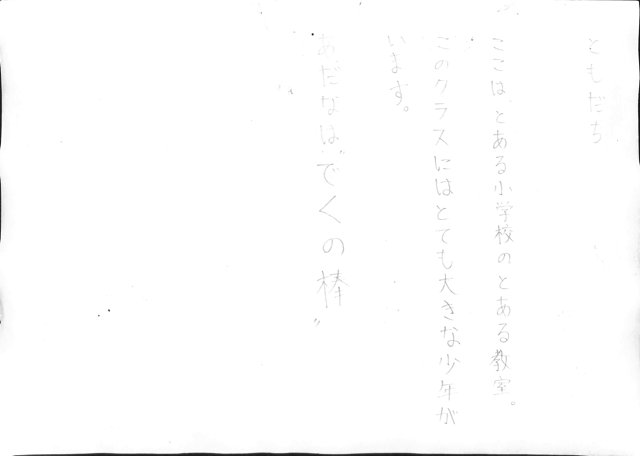 ともだち
ここは、とある小学校のとある教室。
このクラスにはとても大きな少年が
います。
あだなは〝でくの棒〟